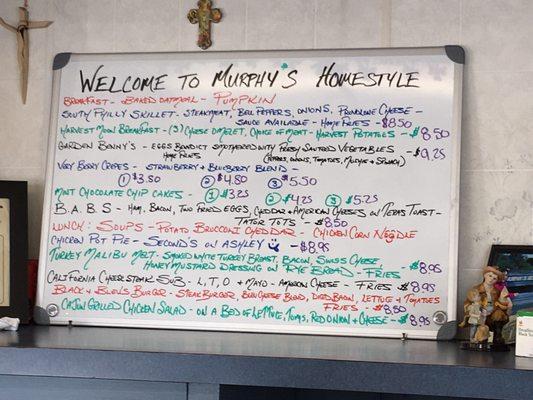 WELCOME TO MURPHY'S HOMESTYLE
BREAKFAST - BAKED OATMEAL - PUMPKIN
SOUTH PHILLY SKILLET - STEAKMEAT, BELL PEPPERS, ONIONS, PROVOLONE CHEESE -
SAUCE AVAILABLE - HOME FRIES - $8.50
HARVEST MOON BREAKFAST - (3) CHEESE OMELET, CHOICE OF MEAT - HARVEST POTATOES - $8.50
GARDEN BENNY'S - EGGS BENEDICT SMOTHERED WITH FRESH SAUTEED VEGETABLES - $9.25
HOME FRIES (PEPPERS, ONIONS, TOMATOES, MUSHIE & SPINACH)
VERY BERRY CREPES - STRAWBERRY & BLUEBERRY BLEND -
① $3.50 ② $4.80 ③ $5.50
MINT CHOCOLATE CHIP CAKES - ① $3.25 ② $4.25 ③ $5.25
B.A.B.S - HAM, BACON, TWO FRIED EGGS, CHEDDAR & AMERICAN CHEESES ON TEXAS TOAST -
TATOR TOTS - $8.50
LUNCH: SOUPS - POTATO BROCCOLI CHEDDAR - CHICKEN CORN NOODLE
CHICKEN POT PIE - SECOND'S ON ASHLEY - $8.95
TURKEY MALIBU MELT - SMOKED WHITE TURKEY BREAST, BACON, SWISS CHEESE
HONEY MUSTARD DRESSING ON RYE BREAD - FRIES - $8.95
CALIFORNIA CHEESESTEAK SUB - L, T, O & MAYO - AMERICAN CHEESE - FRIES - $8.95
BLACK N BLEU'S BURGER - STEAK BURGER, BLEU CHEESE BLEND, DICED BACON, LETTUCE & TOMATOES
FRIES - $8.50
CAJUN GRILLED CHICKEN SALAD - ON A BED OF LETTUCE, TOMS, RED ONION & CHEESE - $8.95